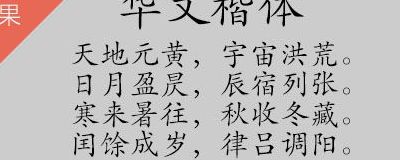 果
华文楷体
天地元黄，宇宙洪荒。
日月盈昃，辰宿列张。
寒来暑往，秋收冬藏。
闰馀成岁，律吕调阳。